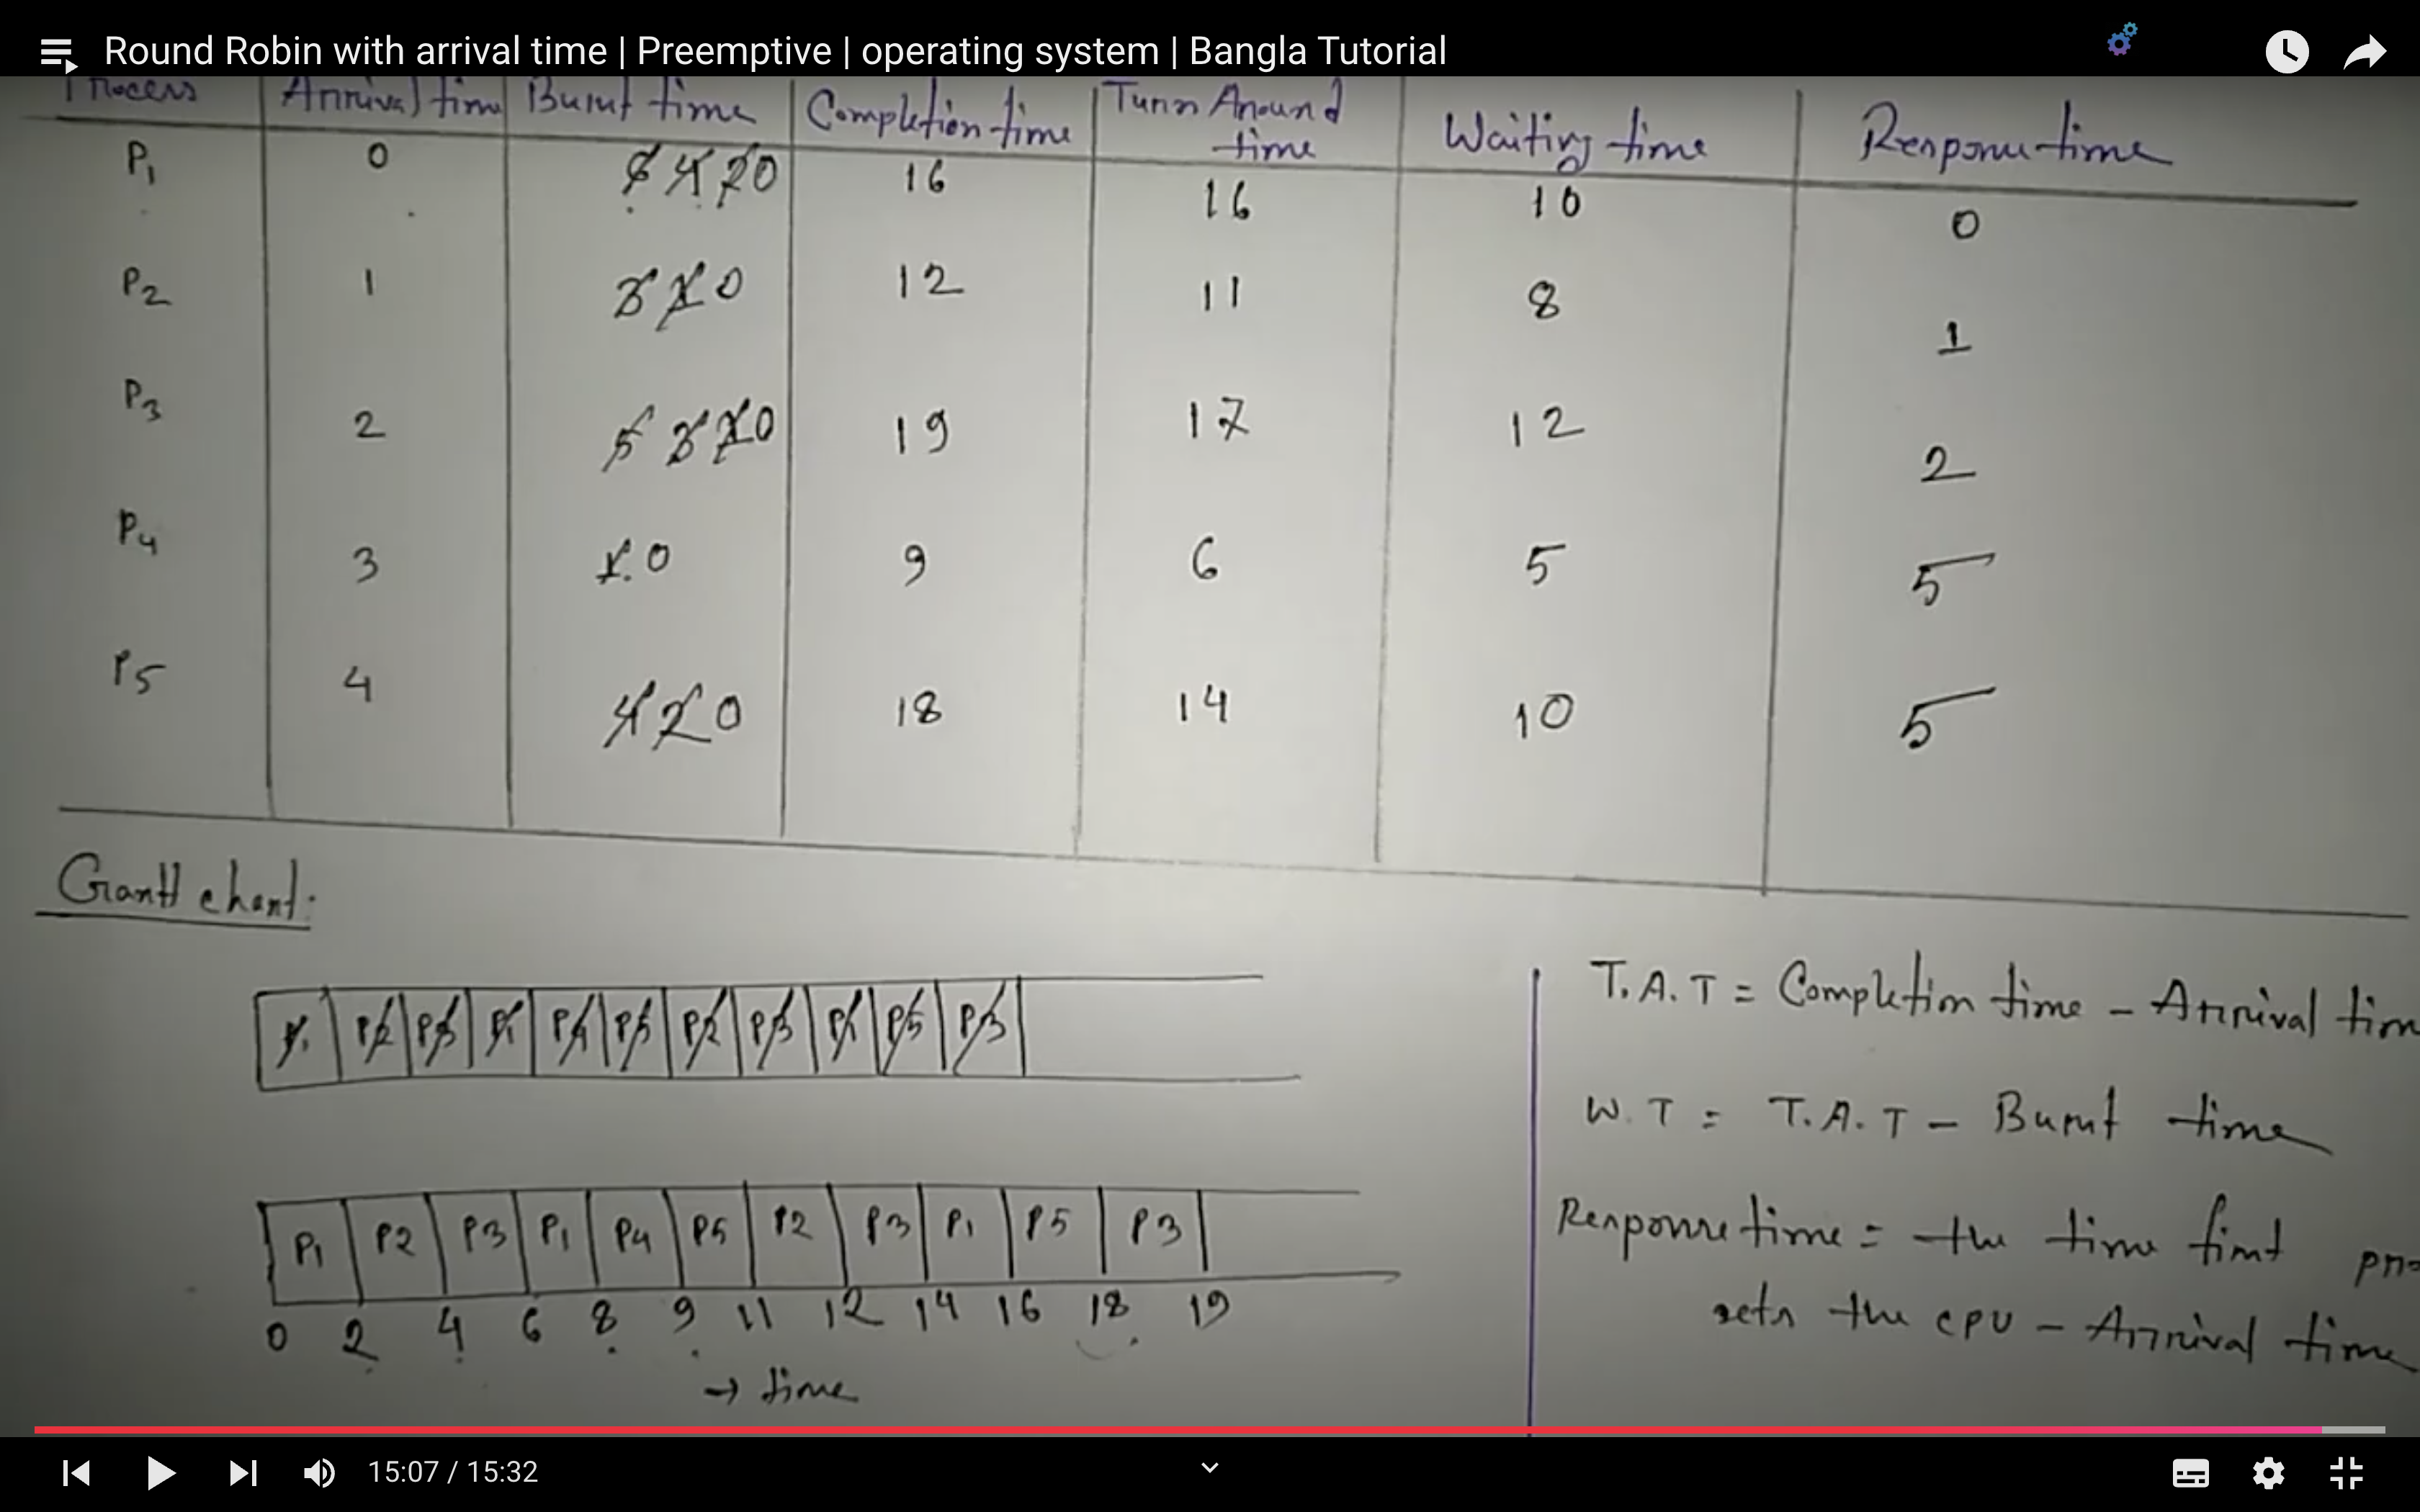 Round Robin with arrival time | Preemptive | operating system | Bangla Tutorial
Process Arrival time Burst time Completion time Turn Around time Waiting time Response time
P1 0 6 4 2 0 16 16 10 0
P2 1 3 1 0 12 11 8 1
P3 2 5 3 1 0 19 17 12 2
P4 3 1 0 9 6 5 5
P5 4 4 2 0 18 14 10 5
Gantt chart:
P1 P2 P3 P1 P4 P5 P2 P3 P1 P5 P3
P1 P2 P3 P1 P4 P5 P2 P3 P1 P5 P3
0 2 4 6 8 9 11 12 14 16 18 19
→ time
T.A.T = Completion time - Arrival tim
W.T = T.A.T - Burst time
Response time = the time first pro
gets the CPU - Arrival time
15:07 / 15:32